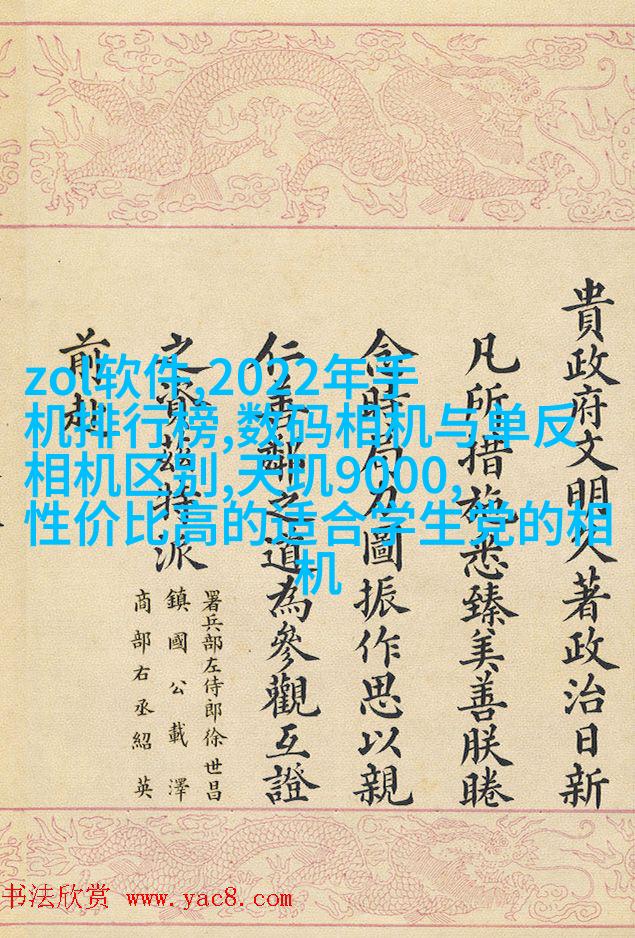 貴政府文明久著政治日新
凡所措施悉臻美善朕睠
念時局力圖振作思以親
仁善鄰之道為參觀互證
之資茲特派
署兵部左侍郎徐世昌
鎮國公載澤
商部右丞紹英
前赴
zol软件,2022年手
机排行榜,数码相机与单反
相机区别,天玑9000,
性价比高的适合学生党的相
机
书法欣赏 www.yac8.com